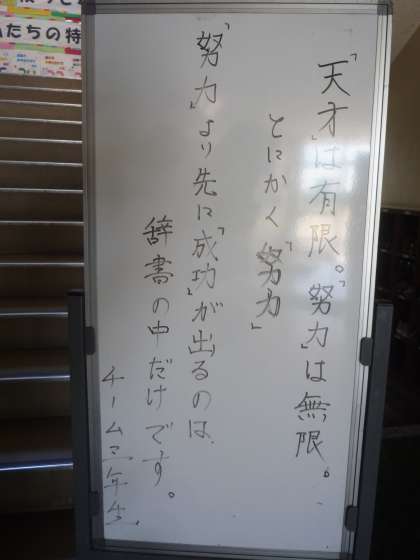 「天才」は有限。「努力」は無限。
とにかく「努力」
「努力」より先に「成功」が出るのは、
辞書の中だけです。
チーム三年生
たちの特